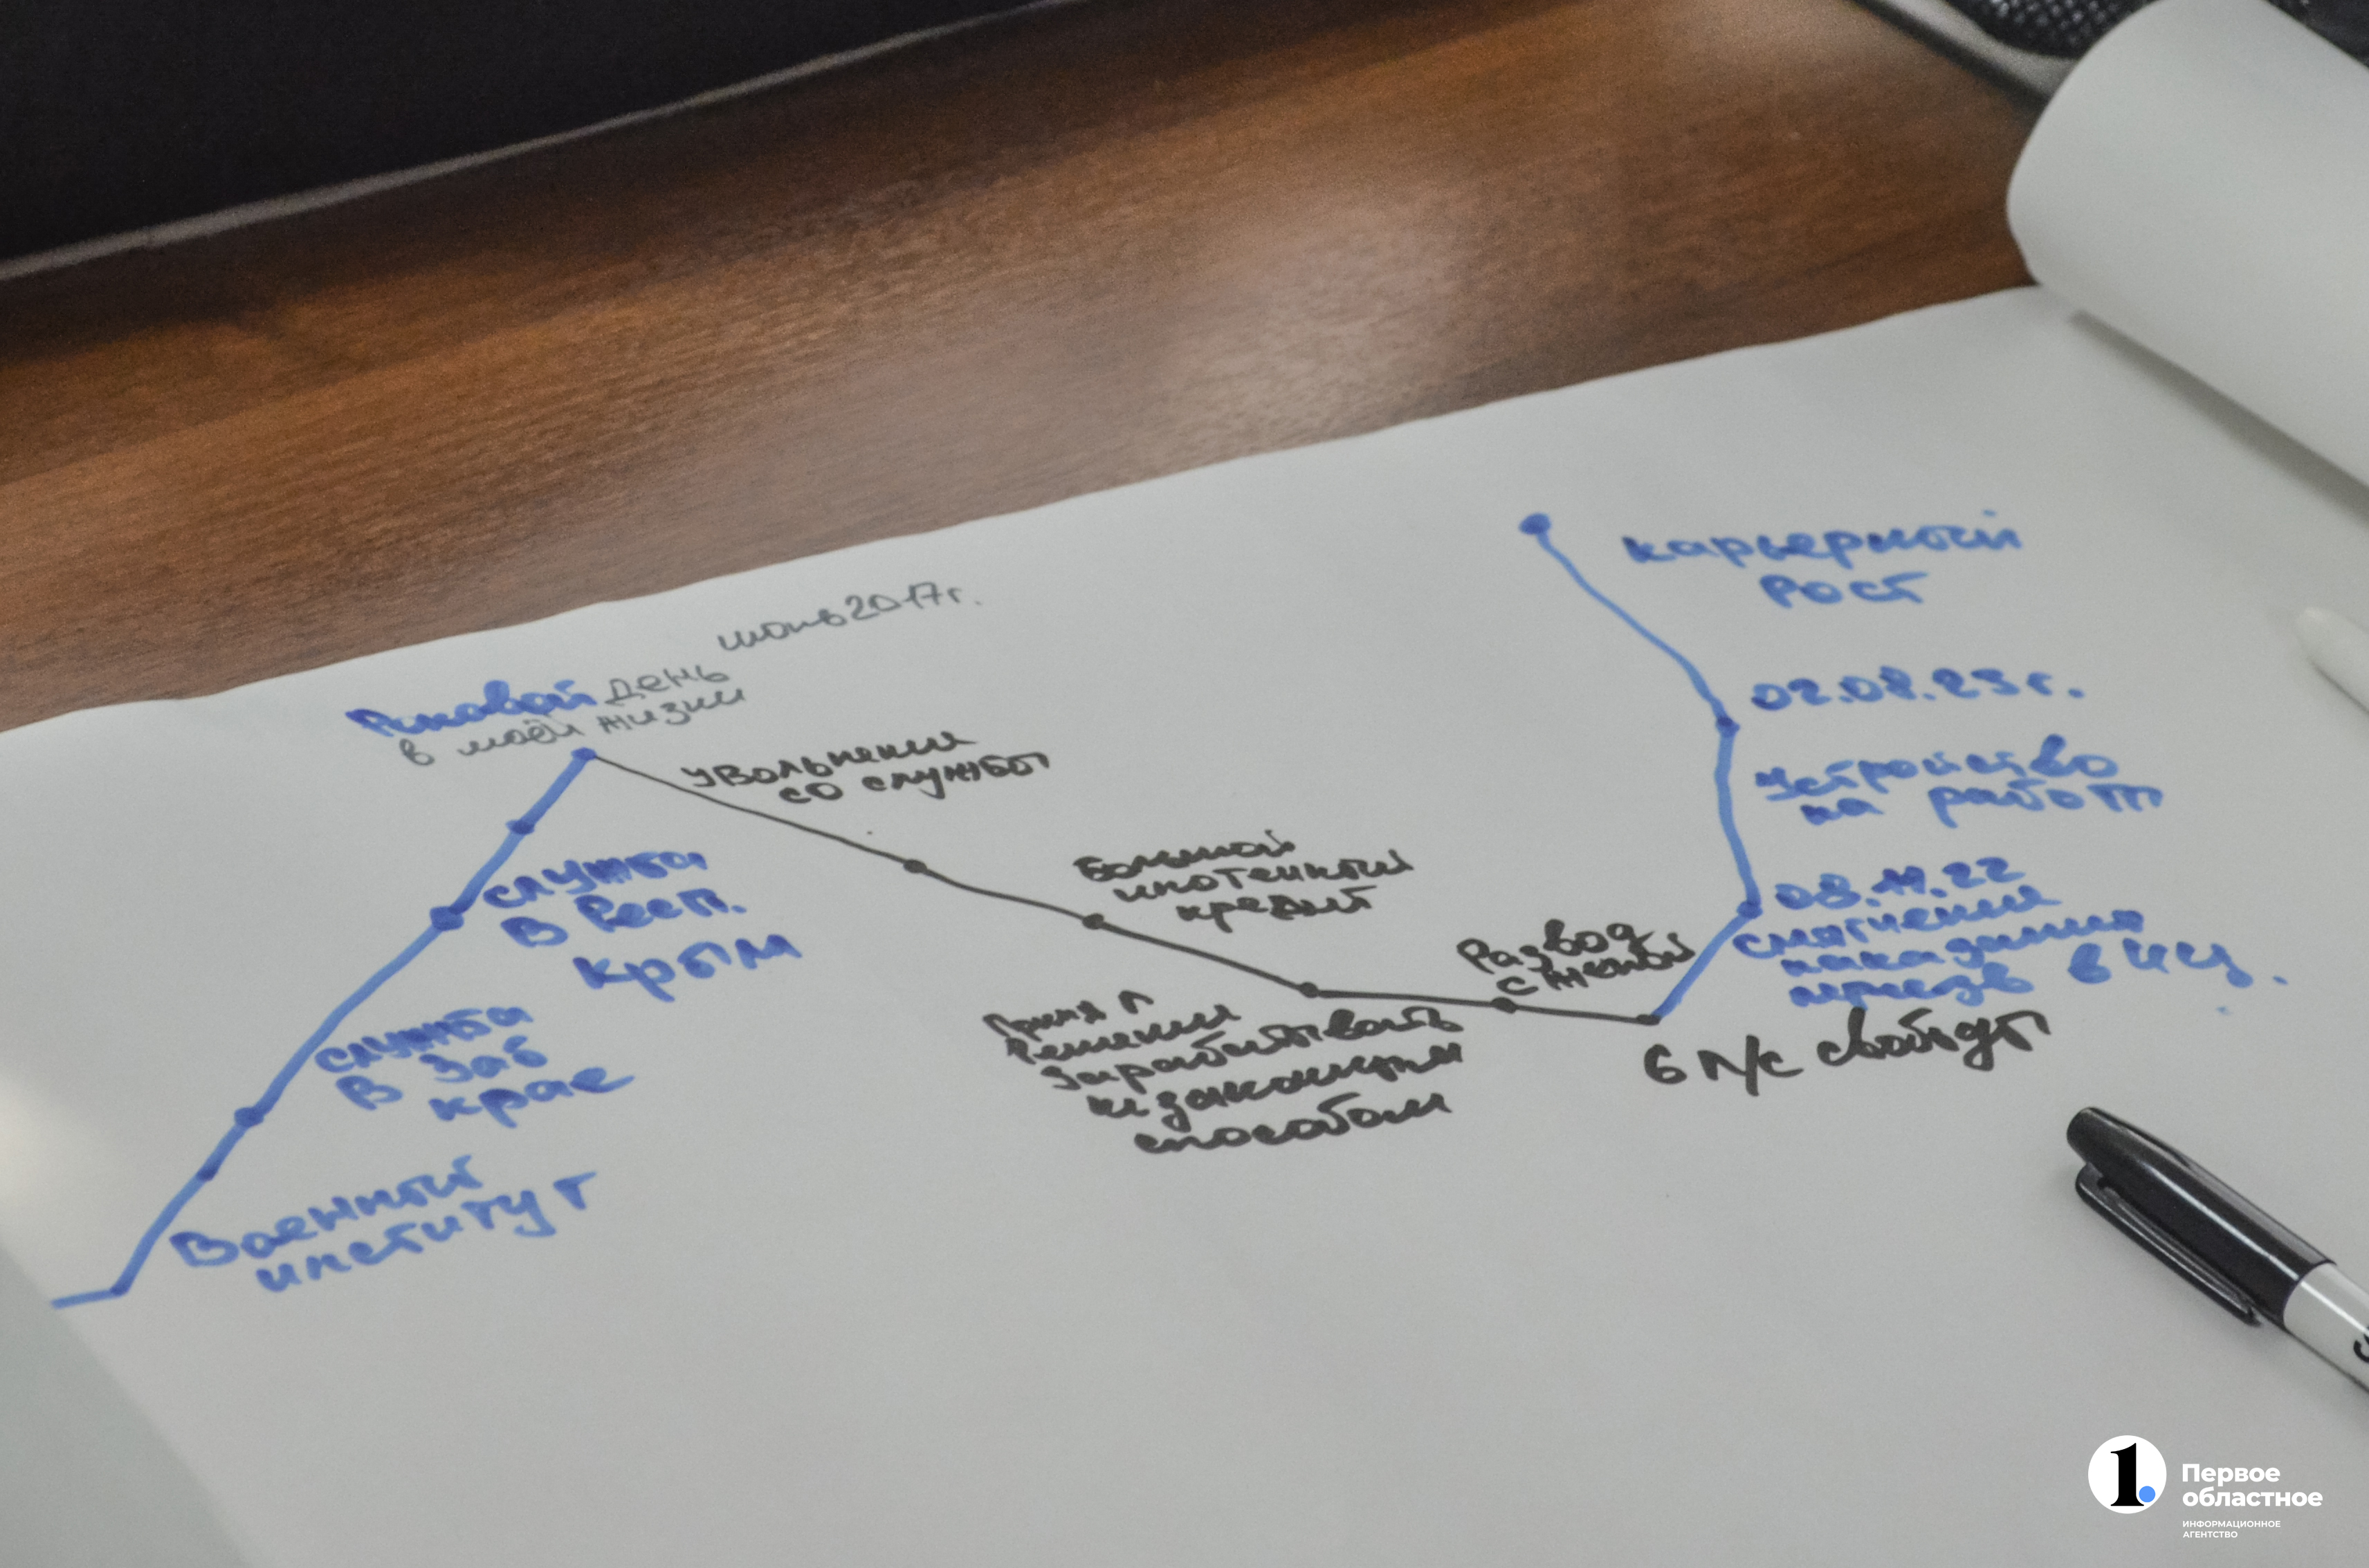 июнь 2017г.
Роковой день
в моей жизни
увольнении
со службы
Большой
ипотечный
кредит
Принял
решении
зарабатывать
незаконным
способом
Развод
с женой
6 л/с свободы
карьерный
рост
02.08.23г.
Устройство
на работу
08.11.22
смягчении
наказания
в ИЦ.
служба
в Респ.
Крым
служба
в Заб
крае
Военный
институт
1.
Первое
областное
ИНФОРМАЦИОННОЕ
АГЕНТСТВО